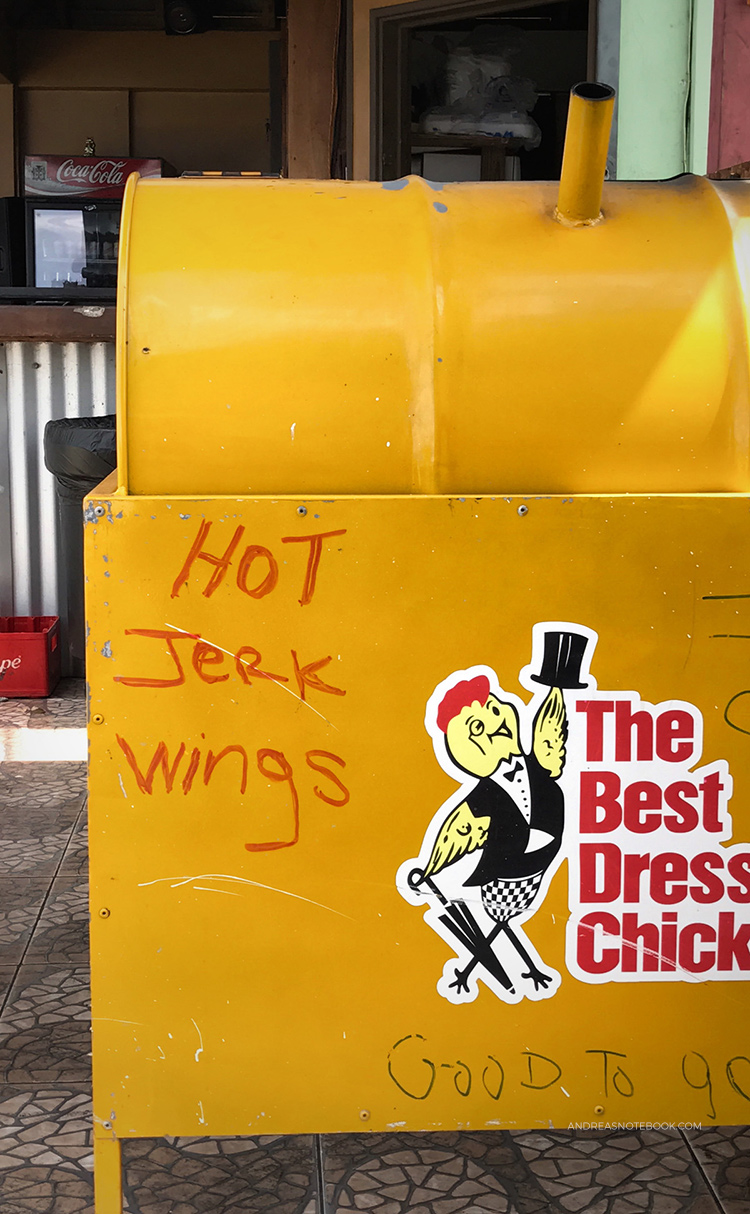 Coca-Cola
HOT
JeRK
wings
The
Best
Dress
Chick
GOOD TO go
ANDREASNOTEBOOK.COM